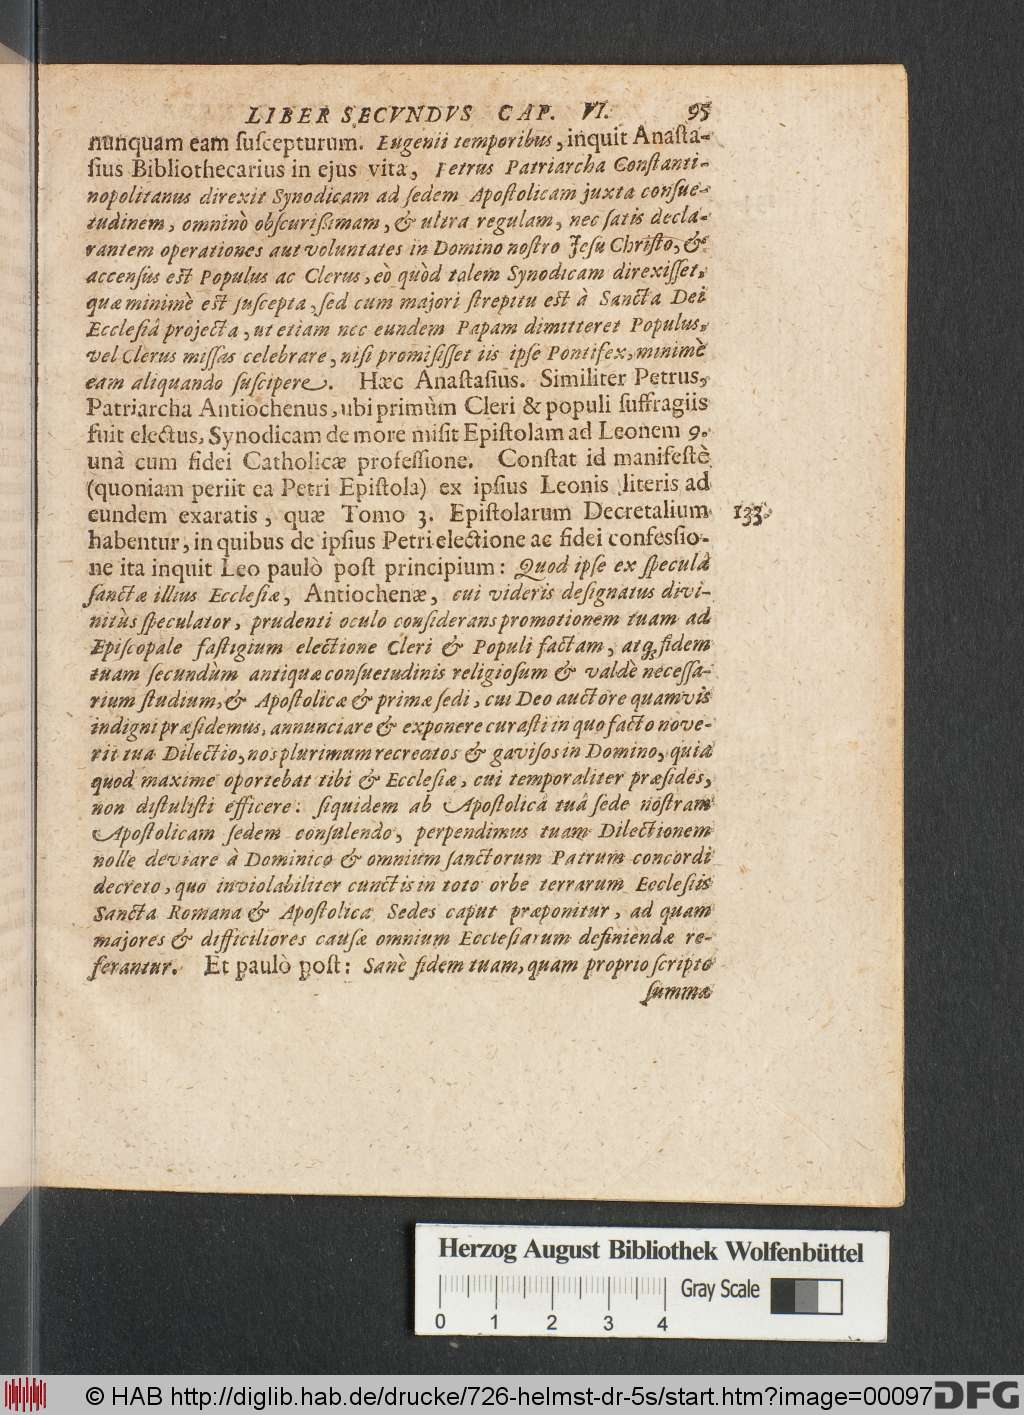 LIBER SECVNDVS CAP. VI. 95
nunquam eam ſuſcepturum. Eugenii temporibus, inquit Anaſta-
ſius Bibliothecarius in ejus vita, Petrus Patriarcha Conſtanti-
nopolitanus direxit Synodicam ad ſedem Apoſtolicam juxta conſue-
tudinem, omninò obſcuriſsimam, & ultra regulam, nec ſatis decla-
rantem operationes aut voluntates in Domino noſtro Jeſu Chriſto, &
accenſus eſt Populus ac Clerus, eò quòd talem Synodicam direxiſſet,
quæ minimè eſt ſuſcepta, ſed cum majori ſtrepitu eſt à Sancta Dei
Eccleſiâ projecta, ut etiam nec eundem Papam dimitteret Populus,
vel Clerus miſſas celebrare, niſi promiſiſſet iis ipſe Pontifex, minimè
eam aliquando ſuſcipere. Hæc Anaſtaſius. Similiter Petrus,
Patriarcha Antiochenus, ubi primùm Cleri & populi ſuffragiis
fuit electus, Synodicam de more miſit Epiſtolam ad Leonem 9.
unà cum fidei Catholicæ profeſſione. Conſtat id manifeſtè
(quoniam periit ea Petri Epiſtola) ex ipſius Leonis literis ad
eundem exaratis, quæ Tomo 3. Epiſtolarum Decretalium 133.
habentur, in quibus de ipſius Petri electione ac fidei confeſſio-
ne ita inquit Leo paulò poſt principium: Quod ipſe ex ſpeculâ
ſanctæ illius Eccleſiæ, Antiochenæ, cui videris deſignatus divi-
nitùs ſpeculator, prudenti oculo conſiderans promotionem tuam ad
Epiſcopale faſtigium electione Cleri & Populi factam, atq; fidem
tuam ſecundùm antiquæ conſuetudinis religioſum & valdè neceſſa-
rium ſtudium, & Apoſtolicæ & primæ ſedi, cui Deo auctore quamvis
indigni præſidemus, annunciare & exponere curaſti in quo facto nove-
rit tua Dilectio, nos plurimum recreatos & gaviſos in Domino, quia
quod maxime oportebat tibi & Eccleſiæ, cui temporaliter præſides,
non diſtuliſti efficere: ſiquidem ab Apoſtolicâ tuâ ſede noſtram
Apoſtolicam ſedem conſulendo, perpendimus tuam Dilectionem
nolle deviare à Dominico & omnium ſanctorum Patrum concordi
decreto, quo inviolabiliter cunctis in toto orbe terrarum Eccleſiis
Sancta Romana & Apoſtolica Sedes caput præponitur, ad quam
majores & difficiliores cauſæ omnium Eccleſiarum definiendæ re-
ferantur. Et paulò poſt: Sanè fidem tuam, quam proprio ſcripto
ſummæ
Herzog August Bibliothek Wolfenbüttel
Gray Scale
0 1 2 3 4
© HAB http://diglib.hab.de/drucke/726-helmst-dr-5s/start.htm?image=00097 DFG